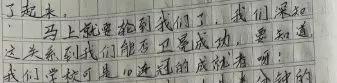 了起来。
马上就要轮到我们了，我们深知
这关系到我们能否卫冕成功，要知道，
我们学校可是10连冠的成绩者呀！
钟的